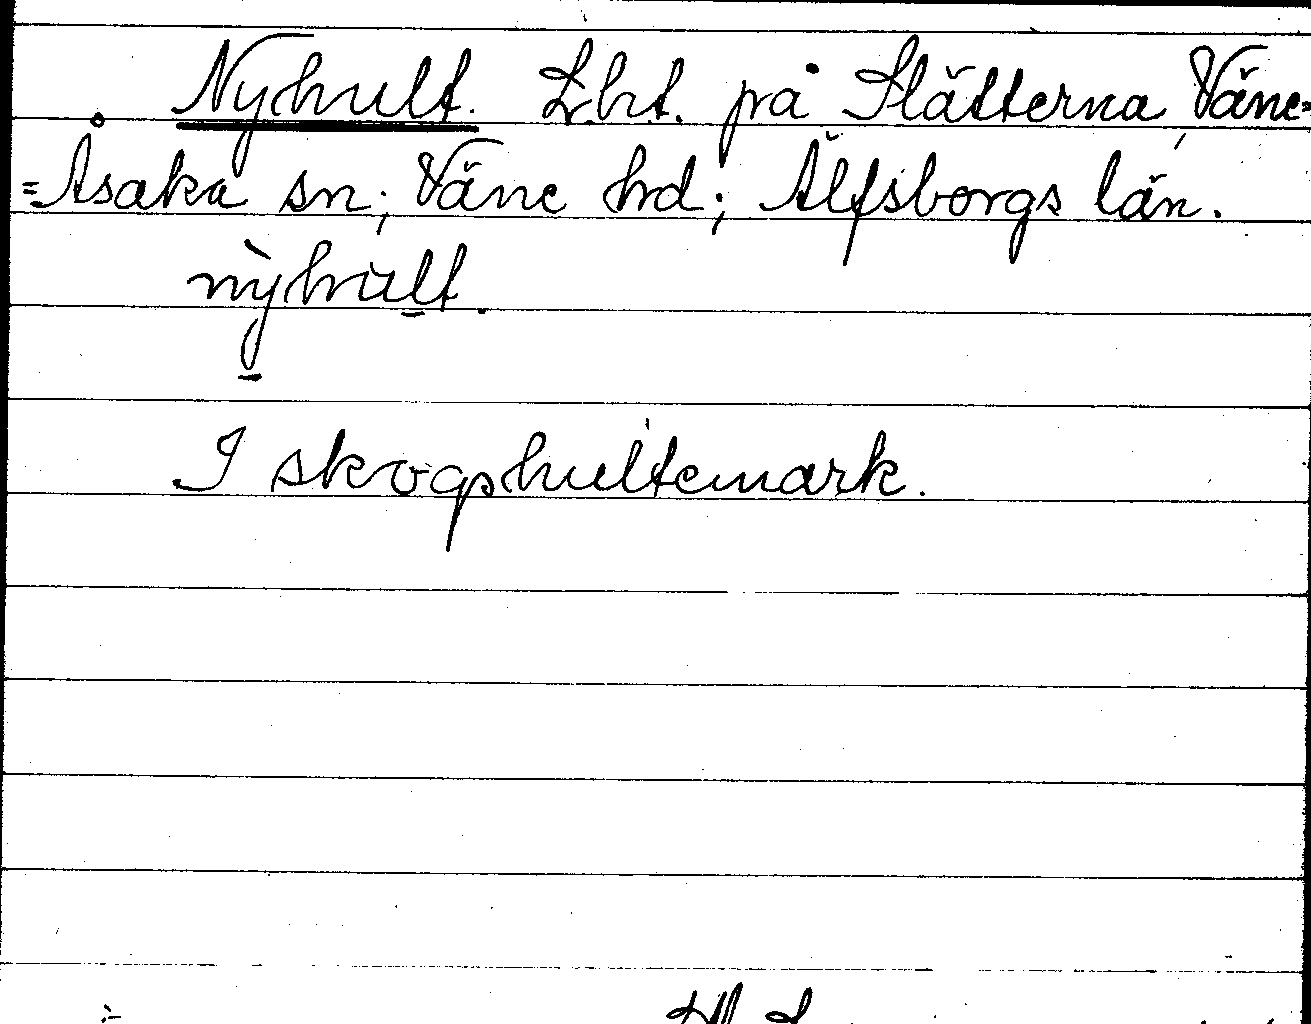 Nyhult. Lht. på Slätterna, Väne-
=Åsaka sn; Väne hrd; Älfsborgs län.
nỳhult.
I skogshultemark.